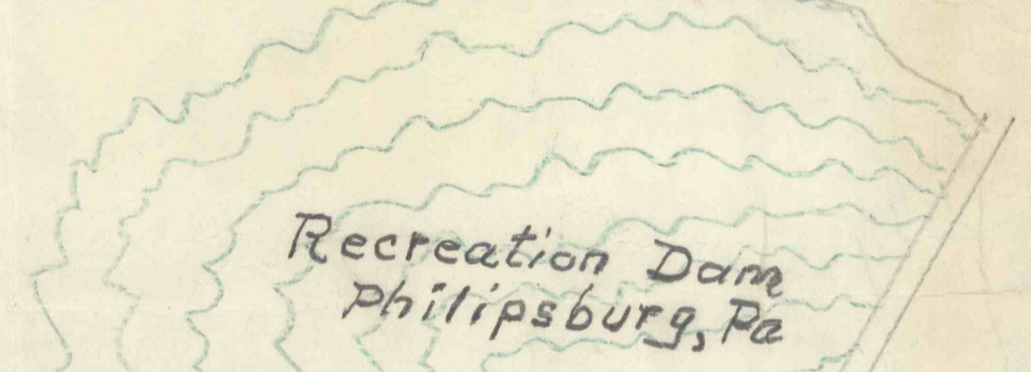 Recreation Dam
Philipsburg, Pa